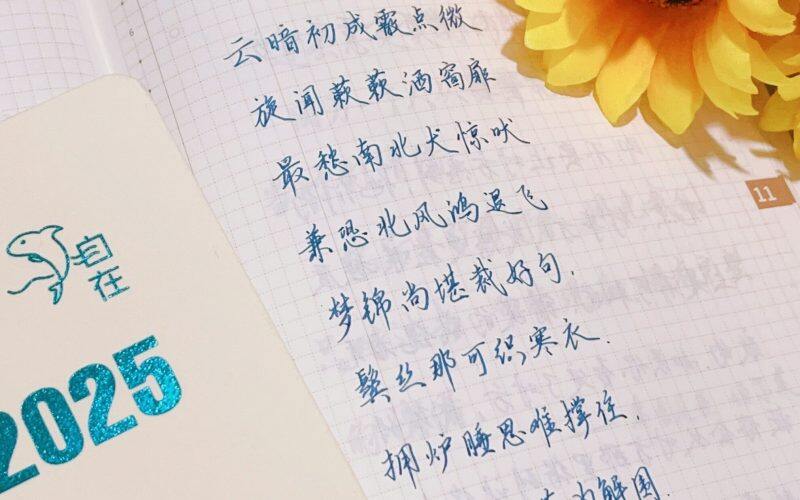 云暗初成霰点微
旋闻蔌蔌洒窗扉
最愁南北犬惊吠
兼恐北风鸿退飞
梦锦尚堪裁好句.
鬓丝那可织寒衣.
拥炉睡思难撑住.
为解围.
自在
2025
11
6